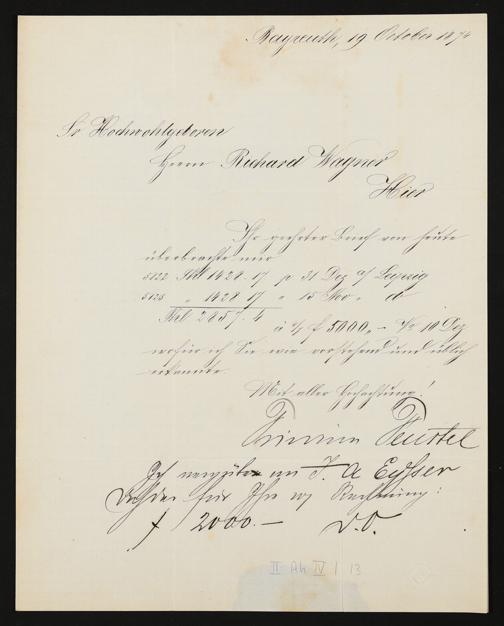 Bayreuth, 19 October 1874
Sr Hochwohlgeboren
Herrn Richard Wagner
Hier
Ihr geehrter Brief von heute
überbrachte mir
5122 Thl 1428.17 p 31 Dez a/ Leipzig
5123 " 1428 17 " 15 Nov " do
Thl 2857.4
f 5000,- 10 Dez
wofür ich Sie wie vorstehend und üblich
erkannte.
Mit aller Hochachtung!
Feustel
Ich an J. A Eysser
für Ihre Rechnung:
f 2000.- D.O.
II Ah IV | 13